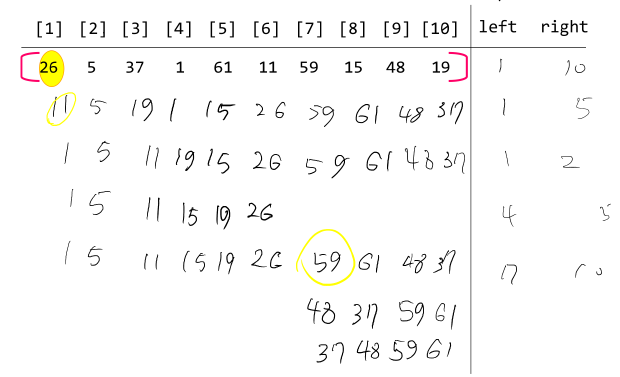 [1] [2] [3] [4] [5] [6] [7] [8] [9] [10] left right
26 5 37 1 61 11 59 15 48 19 1 10
11 5 19 1 15 26 59 61 48 37 1 5
1 5 11 19 15 26 59 61 48 37 1 2
1 5 11 15 19 26 4 5
1 5 11 15 19 26 59 61 48 37 7 10
48 37 59 61
37 48 59 61